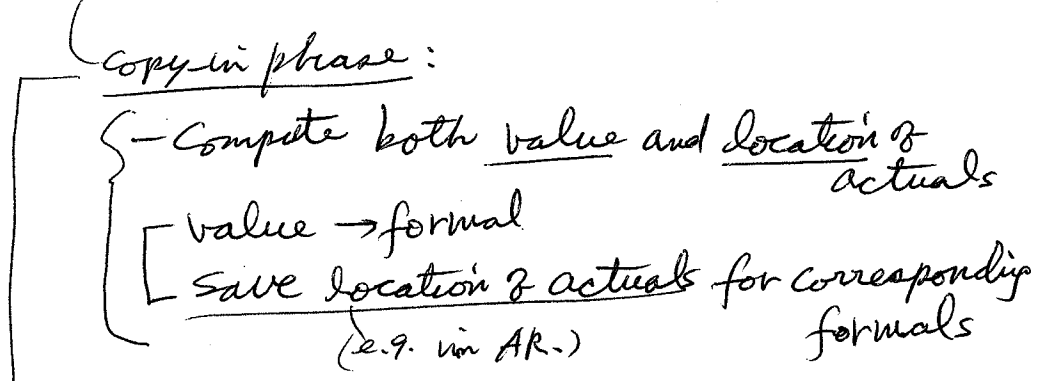 copy-in phrase:
- Compute both value and location of
actuals
value → formal
Save location of actuals for corresponding
formals
(e.g. in AR.)